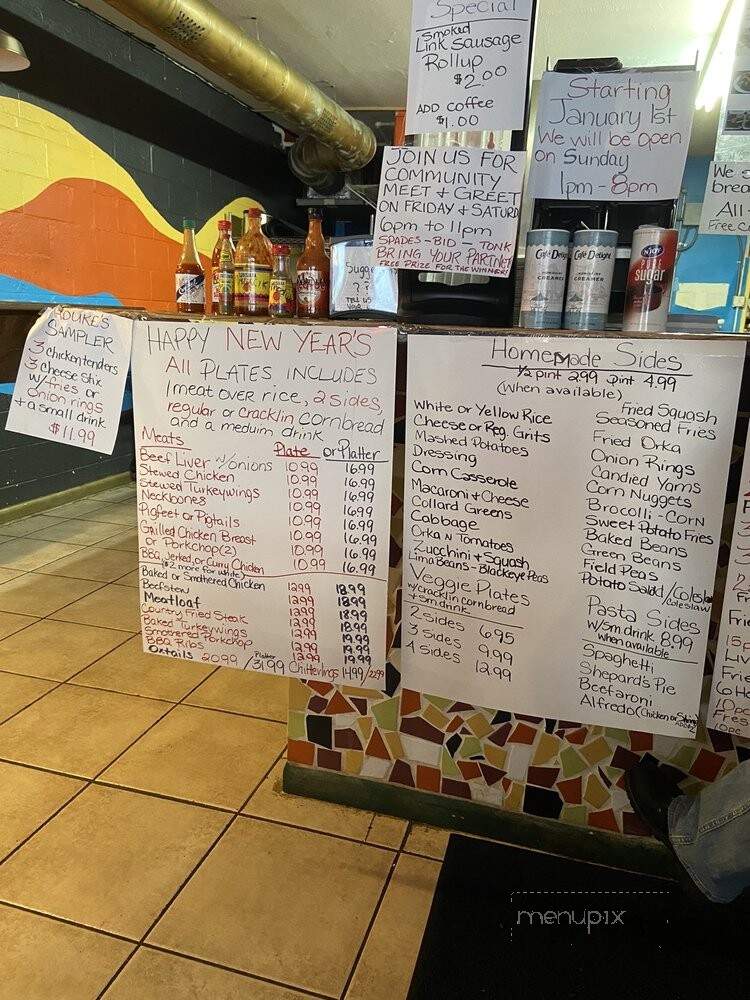 Special
Smoked
Link Sausage
Rollup
$2.00
ADD coffee
$1.00
Starting
January 1st
We will be open
on Sunday
1pm - 8pm
JOIN US FOR
COMMUNITY
MEET & GREET
ON FRIDAY & SATURD
6pm to 11pm
SPADES - BID - TONK
BRING YOUR PARTNE
FREE PRIZE FOR THE WINNER!
We s
brea
All
Free C
Sugar
??
TELL US
Café Delight
CREAMER
Café Delight
CREAMER
ENJOY
sugar
DUKE'S
SAMPLER
3 chicken tenders
3 cheese stix
w/ fries or
onion rings
+ a small drink
$11.99
HAPPY NEW YEAR'S
All PLATES INCLUDES
1 meat over rice, 2 sides,
regular or cracklin cornbread
and a meduim drink
Meats Plate or Platter
Beef Liver w/onions 10.99 16.99
Stewed Chicken 10.99 16.99
Stewed Turkeywings 10.99 16.99
Neckbones 10.99 16.99
Pigfeet or Pigtails 10.99 16.99
Grilled Chicken Breast 10.99 16.99
or Porkchop (2) 10.99 16.99
BBQ, Jerked, or Curry Chicken 10.99 16.99
($2 more for white)
Baked or Smothered Chicken
Beefstew 12.99 18.99
Meatloaf 12.99 18.99
Country Fried Steak 12.99 18.99
Baked Turkeywings 12.99 18.99
Smothered Porkchop 12.99 19.99
BBQ Ribs 12.99 19.99
Oxtails 20.99 / Platter 31.99 Chitterlings 14.99 / 22.99
Homemade Sides
1/2 pint 2.99 Pint 4.99
(when available)
White or Yellow Rice
Cheese or Reg. Grits
Mashed Potatoes
Dressing
Corn Casserole
Macaroni & Cheese
Collard Greens
Cabbage
Okra N Tomatoes
Zucchini + Squash
Lima Beans - Blackeye Peas
Veggie Plates
w/cracklin cornbread
+ sm drink
2 sides 6.95
3 sides 9.99
4 sides 12.99
Fried Squash
Seasoned Fries
Fried Okra
Onion Rings
Candied Yams
Corn Nuggets
Brocolli - Corn
Sweet Potato Fries
Baked Beans
Green Beans
Field Peas
Potato Salad / coleslaw
Pasta Sides
w/sm drink 8.99
when available
Spaghetti
Shepard's Pie
Beefaroni
Alfredo (Chicken or
menupix